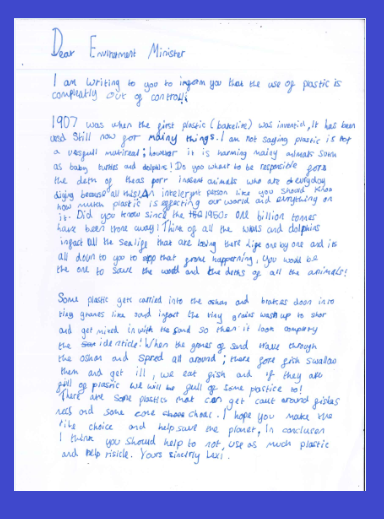 Dear Enviroment Minister
I am writing to you to inform you that the use of plastic is
completly out of controll;
1907 was when the first plastic ( was invented, it has been
and still now for many things. I am not saying plastic is not
a usefull matireal; however it is harming many animals such
as baby turtles and dolphins! Do you want to be responsible for
the deth of these poor animals who are everyday
dying because all this! An person like you should know
how much plastic is effecting our world and everything on
it. Did you know since the 1950s one billion tonnes
have been throne away! Think of all the and dolphins
infact all the Sealife that are losing there life one by one and its
all down to you to stop that from happerning, you would be
the one to save the world and the deths of all the animals!
Some plastic gets carried into the oshan and brakes down into
tiny like sand infact the tiny wash up to shor
and get mixed in with the sand so then it look
the When the of sand trave through
the oshan and spred all around; there fore fish swallow
them and get ill, we eat fish and if they are
full of plastic we will be full of some plastice to!
There are some plastics that can get caut around
neck and some choak. I hope you make the
rite choice and help save the planet, in
I think you should help to not, use as much plastic
and help Yours sincerly Lexi.